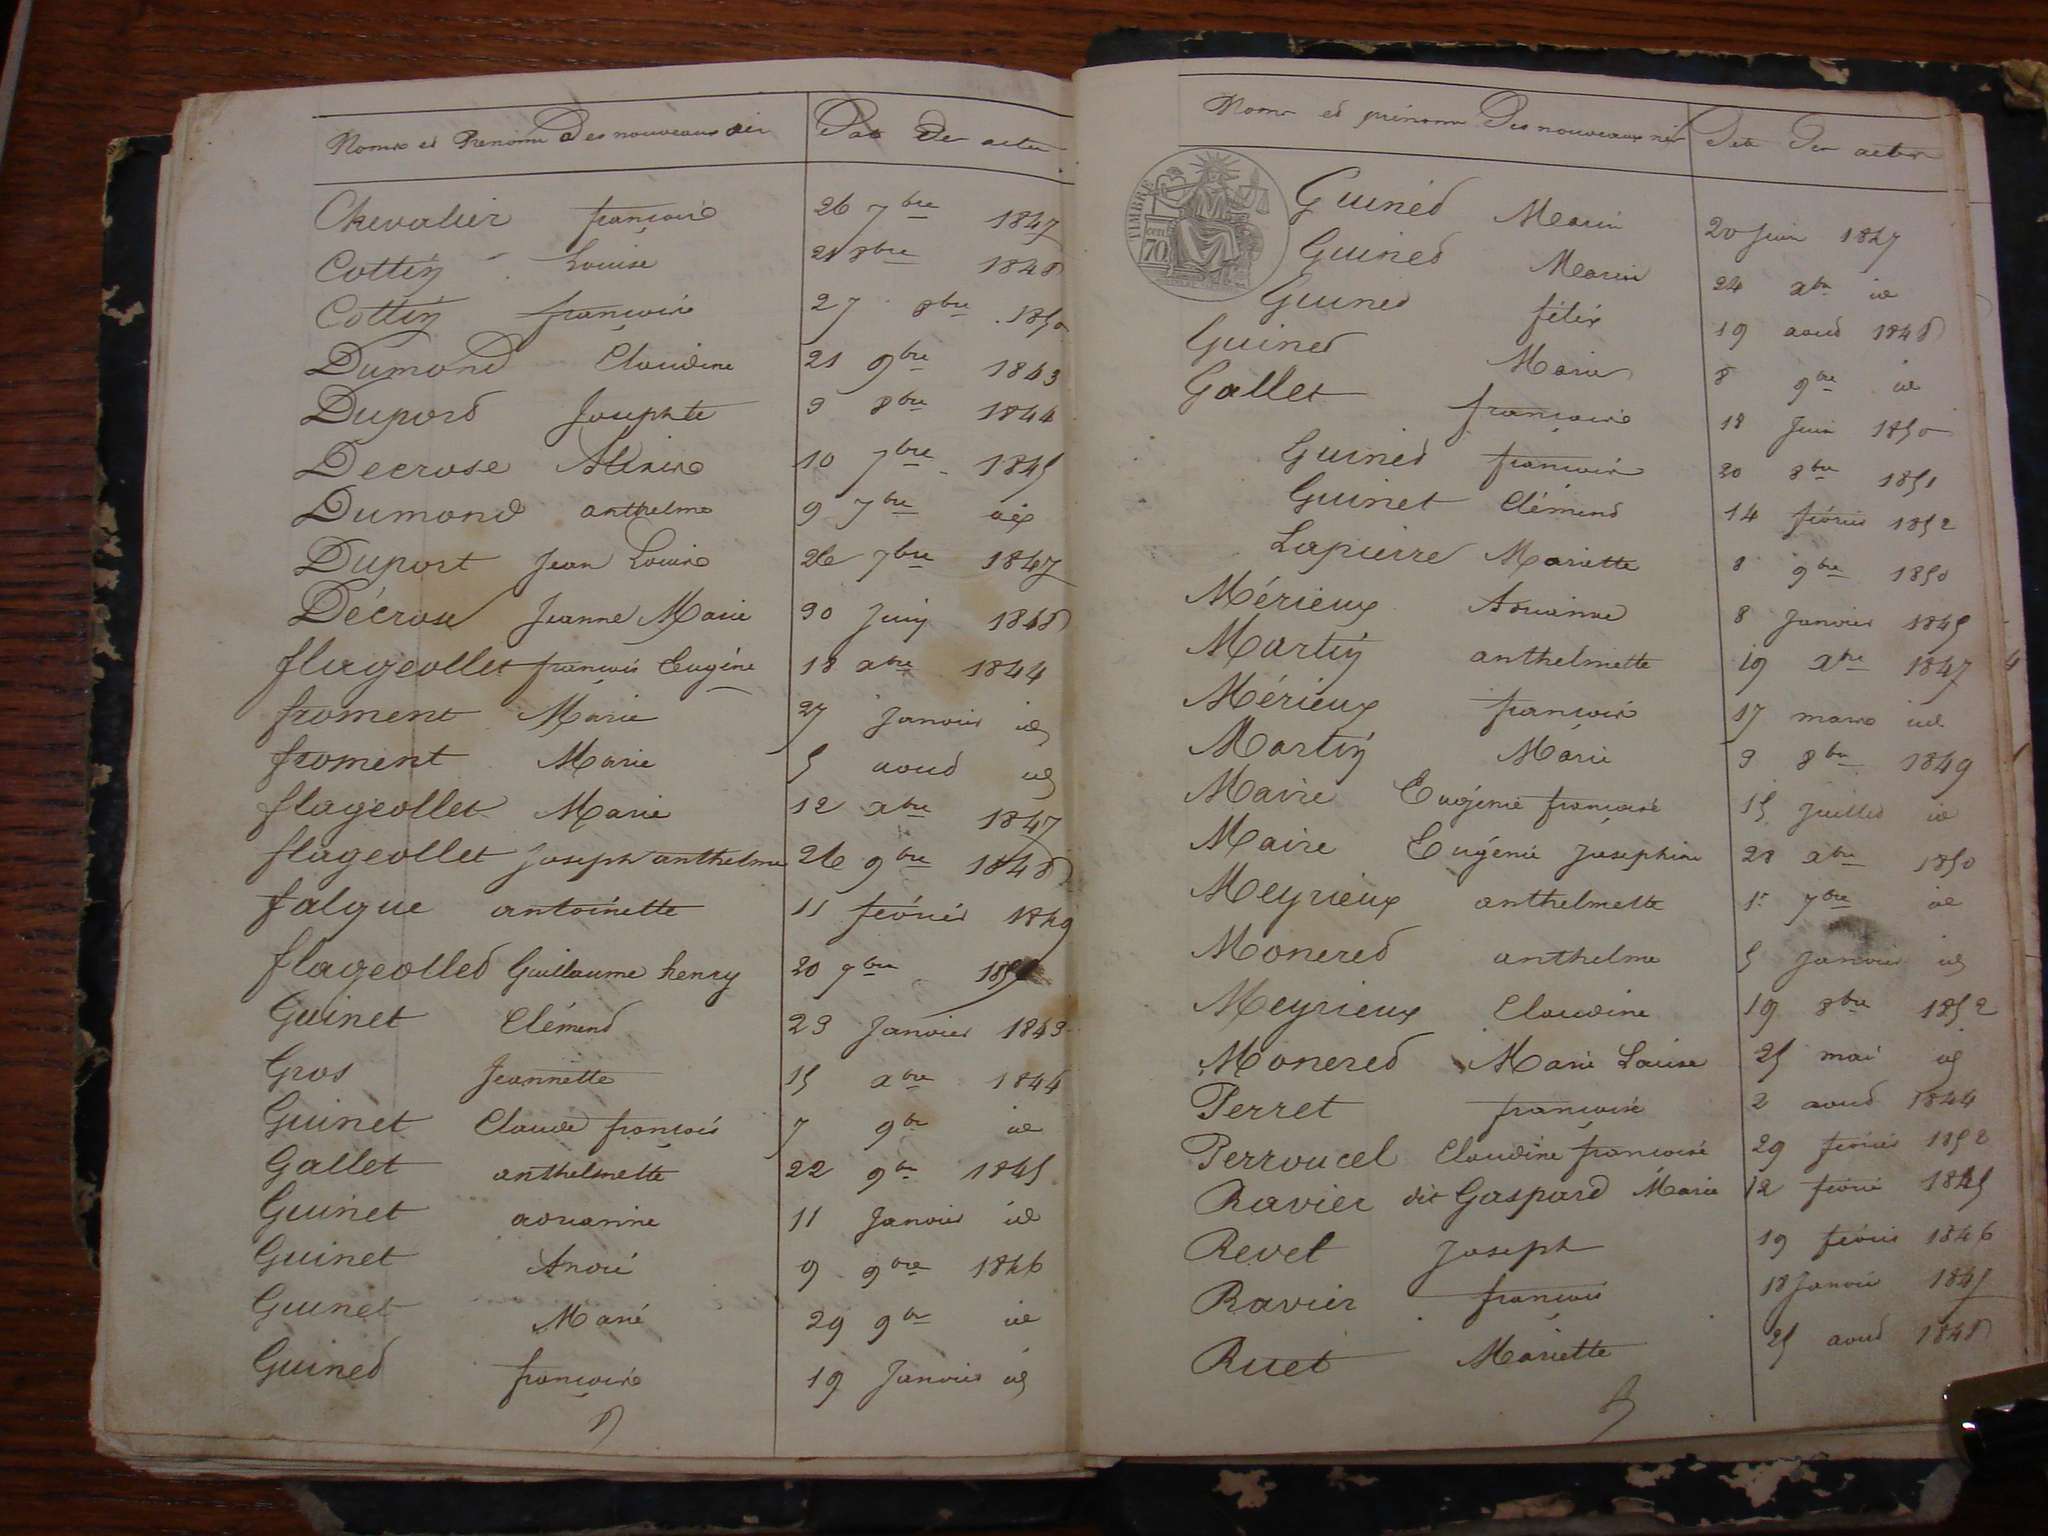 Noms et Prenoms Des nouveaux nés Date Des actes
Chevalier françoise 26 7bre 1847
Cottin Louise 28bre 1848
Cottin françoise 27 8bre 1850
Dumond Claudine 21 9bre 1843
Dupord Josephte 9 8bre 1844
Decrose 10 7bre 1845
Dumond anthelme 9 7bre
Duport Jean Louis 26 7bre 1847
Décrose Jeanne Marie 30 Juin 1848
flageollet françois Eugéne 18 xbre 1844
froment Marie 27 Janvier id
froment Marie 5 aoud id
flageollet Marie 12 xbre 1847
flageollet Joseph anthelme 26 9bre 1848
falque antoinette 11 février 1849
flageolled Guillaume henry 20 7bre
Guinet Clémend 23 Janvier 1843
Gros Jeannette 15 xbre 1844
Guinet Claude françois 7 9bre id
Gallet anthelmette 22 9bre 1845
Guinet adrianne 11 Janvier id
Guinet André 9 9bre 1846
Guinet Marie 29 9bre id
Guined françoise 19 Janvier id
Noms et prénoms Des nouveaux nés Date Des actes
TIMBRE
70
Guined Marie 20 Juin 1847
Guined Marie 24 xbre id
Guined félix 19 aoud 1848
Guined Marie 8 9bre id
Gallet françoise 18 Juin 1850
Guined françoise 20 8bre 1851
Guinet Clémend 14 février 1852
Lapierre Mariette 8 9bre 1850
Mérieux Adrianne 8 Janvier 1845
Martin anthelmette 19 xbre 1847
Mérieux françoise 17 mars id
Martin Marie 9 8bre 1849
Maire Eugénie françoise 15 Juilled id
Maire Eugénie Josephine 28 xbre 1850
Meyrieux anthelmette 1er 7bre id
Monered anthelme 5 Janvier id
Meyrieux Claudine 19 8bre 1852
Monered Marie Louise 25 mai id
Perret françoise 2 aoud 1844
Perroucel Claudine françoise 29 février 1852
Ravier dit Gaspard Marie 12 février 1845
Revet Joseph 19 février 1846
Ravier françois 18 Janvier 1847
Ruet Mariette 25 aoud 1848